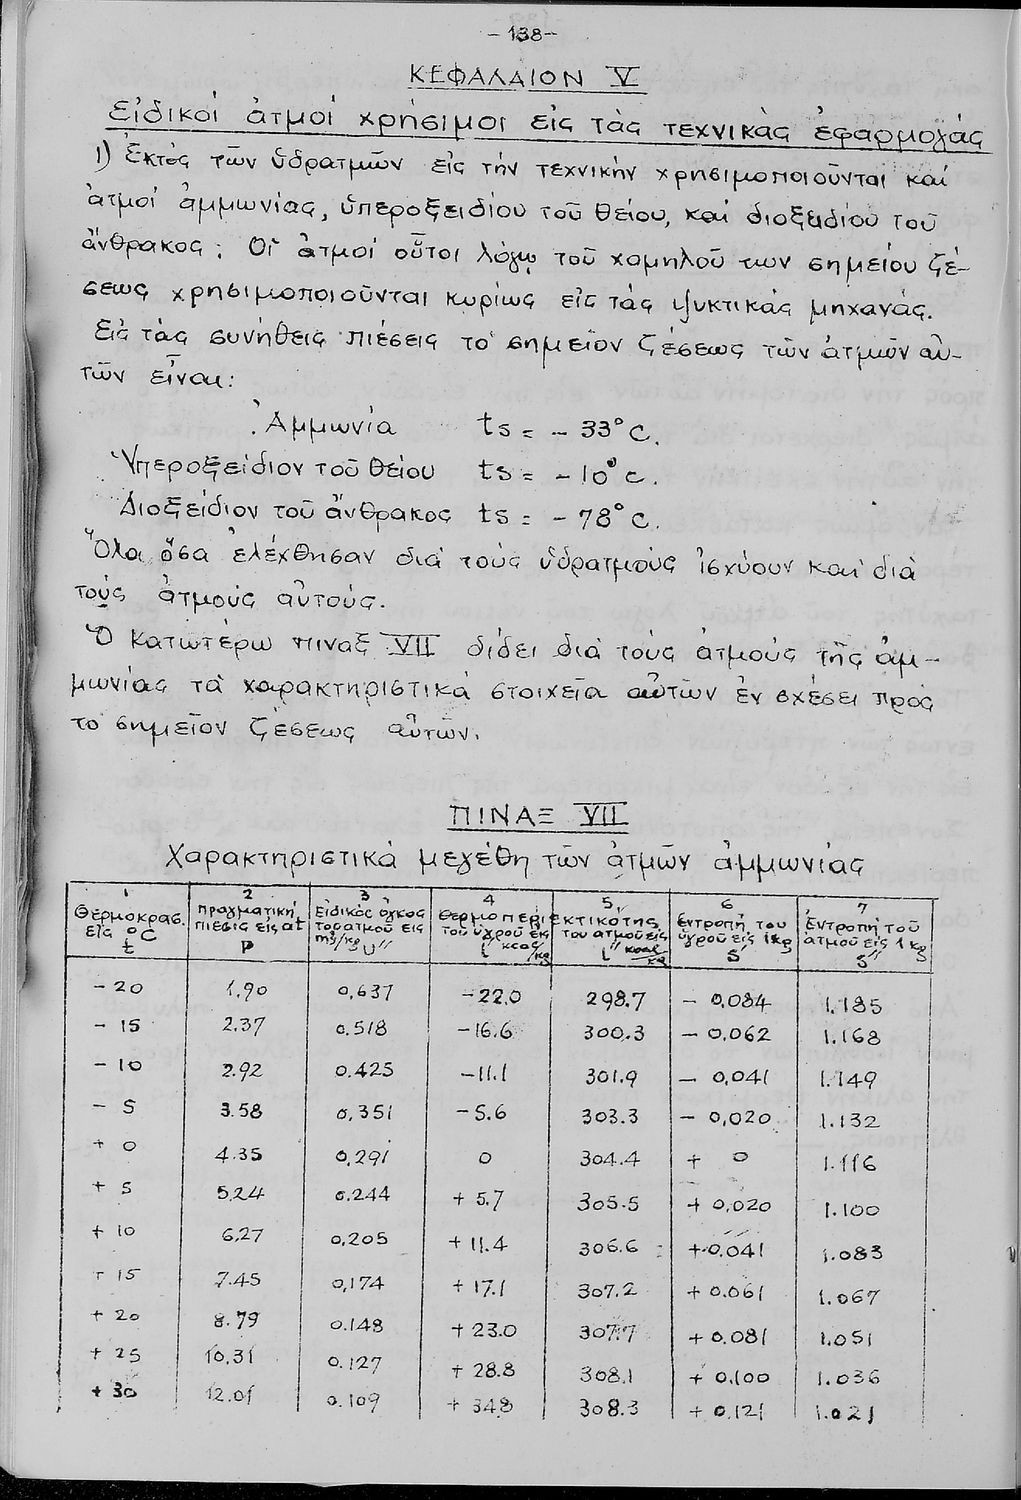 -138-
ΚΕΦΑΛΑΙΟΝ V
Εἰδικοί ἀτμοί χρήσιμοι εἰς τὰς τεχνικὰς ἐφαρμογάς
1) Ἐκτός τῶν ὑδρατμῶν εἰς τήν τεχνικήν χρησιμοποιοῦνται καί
ἀτμοί ἀμμωνίας, ὑπεροξειδίου τοῦ θείου, καί διοξειδίου τοῦ
ἄνθρακος. Οἱ ἀτμοί οὗτοι λόγῳ τοῦ χαμηλοῦ των σημείου ζέ-
σεως χρησιμοποιοῦνται κυρίως εἰς τάς ψυκτικάς μηχανάς.
Εἰς τὰς συνήθεις πιέσεις τό σημεῖον ζέσεως τῶν ἀτμῶν αὐ-
τῶν εἶναι:
Ἀμμωνία ts = - 33° C.
Ὑπεροξείδιον τοῦ θείου ts = - 10° C.
Διοξείδιον τοῦ ἄνθρακος ts = - 78° C.
Ὅλα ὅσα ἐλέχθησαν διά τούς ὑδρατμούς ἰσχύουν καί διά
τούς ἀτμούς αὐτούς.
Ὁ κατωτέρω πιναξ VII δίδει διά τούς ἀτμούς τῆς ἀμ-
μωνίας τὰ χαρακτηριστικά στοιχεῖα αὐτῶν ἐν σχέσει πρός
τό σημεῖον ζέσεως αὐτῶν.
ΠΙΝΑΞ VII
Χαρακτηριστικά μεγέθη τῶν ἀτμῶν ἀμμωνίας
1 2 3 4 5 6 7
Θερμοκρασ. εἰς °C t Πραγματική πιέσις εἰς at P Εἰδικός ὄγκος τοῦ ατμοῦ εις m³/kg υ'' Θερμοπεριεκτικότης τοῦ ὑγροῦ εἰς kcal/kg i' του ατμοῦ εἰς i'' kcal/kg Ἐντροπή του ὑγροῦ εἰς 1kg s' Ἐντροπή τοῦ ἀτμοῦ εἰς 1 kg s''
- 20 1,90 0,637 -22,0 298.7 - 0,084 1.185
- 15 2.37 0.518 -16.6 300.3 - 0,062 1.168
- 10 2.92 0.425 -11.1 301.9 - 0,041 1.149
- 5 3.58 0,351 -5.6 303.3 - 0,020 1.132
+ 0 4.35 0,291 0 304.4 + 0 1.116
+ 5 5.24 0.244 + 5.7 305.5 + 0,020 1.100
+ 10 6,27 0,205 + 11.4 306.6 +0,041 1.083
+ 15 7.45 0,174 + 17.1 307.2 + 0.061 1.067
+ 20 8.79 0.148 + 23.0 307.7 + 0.081 1.051
+ 25 10,31 0.127 + 28.8 308.1 + 0,100 1.036
+ 30 12.01 0.109 + 34.8 308.3 + 0.121 1.021